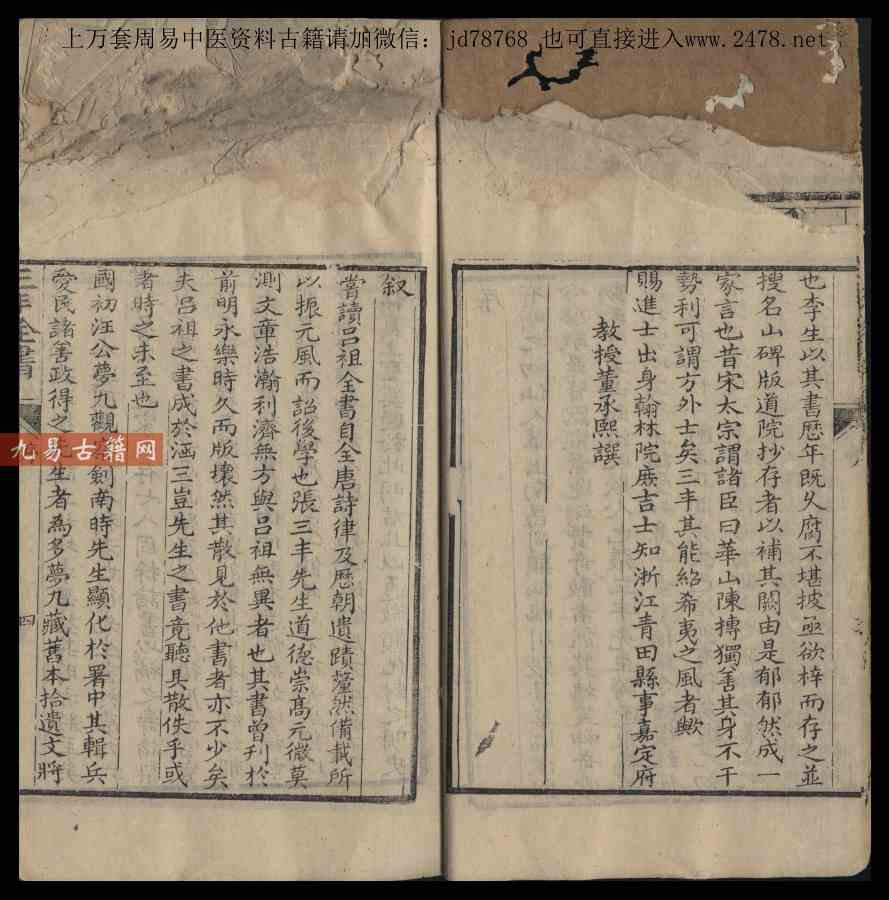 上万套周易中医资料古籍请加微信：jd78768 也可直接进入www.2478.net
也李生以其書歷年既久腐不堪披亟欲梓而存之並
搜名山碑版道院抄存者以補其闕由是郁郁然成一
家言也昔宋太宗謂諸臣曰華山陳摶獨善其身不干
勢利可謂方外士矣三丰其能紹希夷之風者歟
賜進士出身翰林院庶吉士知浙江青田縣事嘉定府
教授董承熙譔
叙
嘗讀呂祖全書自全唐詩律及歷朝遺蹟釐然備載所
以振元風而詔後學也張三丰先生道德崇高元微莫
測文章浩瀚利濟無方與呂祖無異者也其書曾刊於
前明永樂時久而版壞然其散見於他書者亦不少矣
夫呂祖之書成於涵三豈先生之書竟聽其散佚乎或
者時之未至也
國初汪公夢九觀劍南時先生顯化於署中其輯兵
愛民諸善政得之先生者為多夢九藏舊本拾遺文將
三丰全書
四
九易古籍网